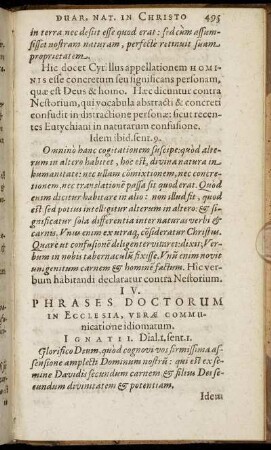 DVAR. NAT. IN CHRISTO 495
in terra nec desiit esse quod erat: sed cum assum-
sisset nostram naturam, perfectè retinuit suam
proprietatem.
Hic docet Cyrillus appellationem HOMI-
NIS esse concretum seu significans personam,
quæ est Deus & homo. Hæc dicuntur contra
Nestorium, qui vocabula abstracti & concreti
confudit in distractione personæ: sicut recen-
tes Eutychiani in naturarum confusione.
Idem ibid. sent. 9.
Omninò hanc cogitationem suscipe: quòd alte-
rum in altero habitet, hoc est, divina natura in
humanitate: nec ullam cōmixtionem, nec concre-
tionem, nec translationē passa sit quod erat. Quod
enim dicitur habitare in alio: non illud fit, quod
est: sed potius intelligitur alterum in altero: & si-
gnificatur sola differentia inter naturas verbi &
carnis. Vnus enim ex utraq, cōsideratur Christus.
Quare ut confusionē diligenter vitaret: dixit; Ver-
bum in nobis tabernaculū fixisse. Vnū enim novit
unigenitum carnem & hominē factum. Hic ver-
bum habitandi declaratur contra Nestorium.
IV.
PHRASES DOCTORUM
IN ECCLESIA, VERÆ COMMU-
nicatione idiomatum.
IGNATII. Dial. 1. sent. 1.
Glorifico Deum, quòd cognovi vos firmissima as-
sensione amplecti Dominum nostrū: qui est ex se-
mine Davidis secundum carnem & filius Dei se-
cundum divinitatem & potentiam.
Idem